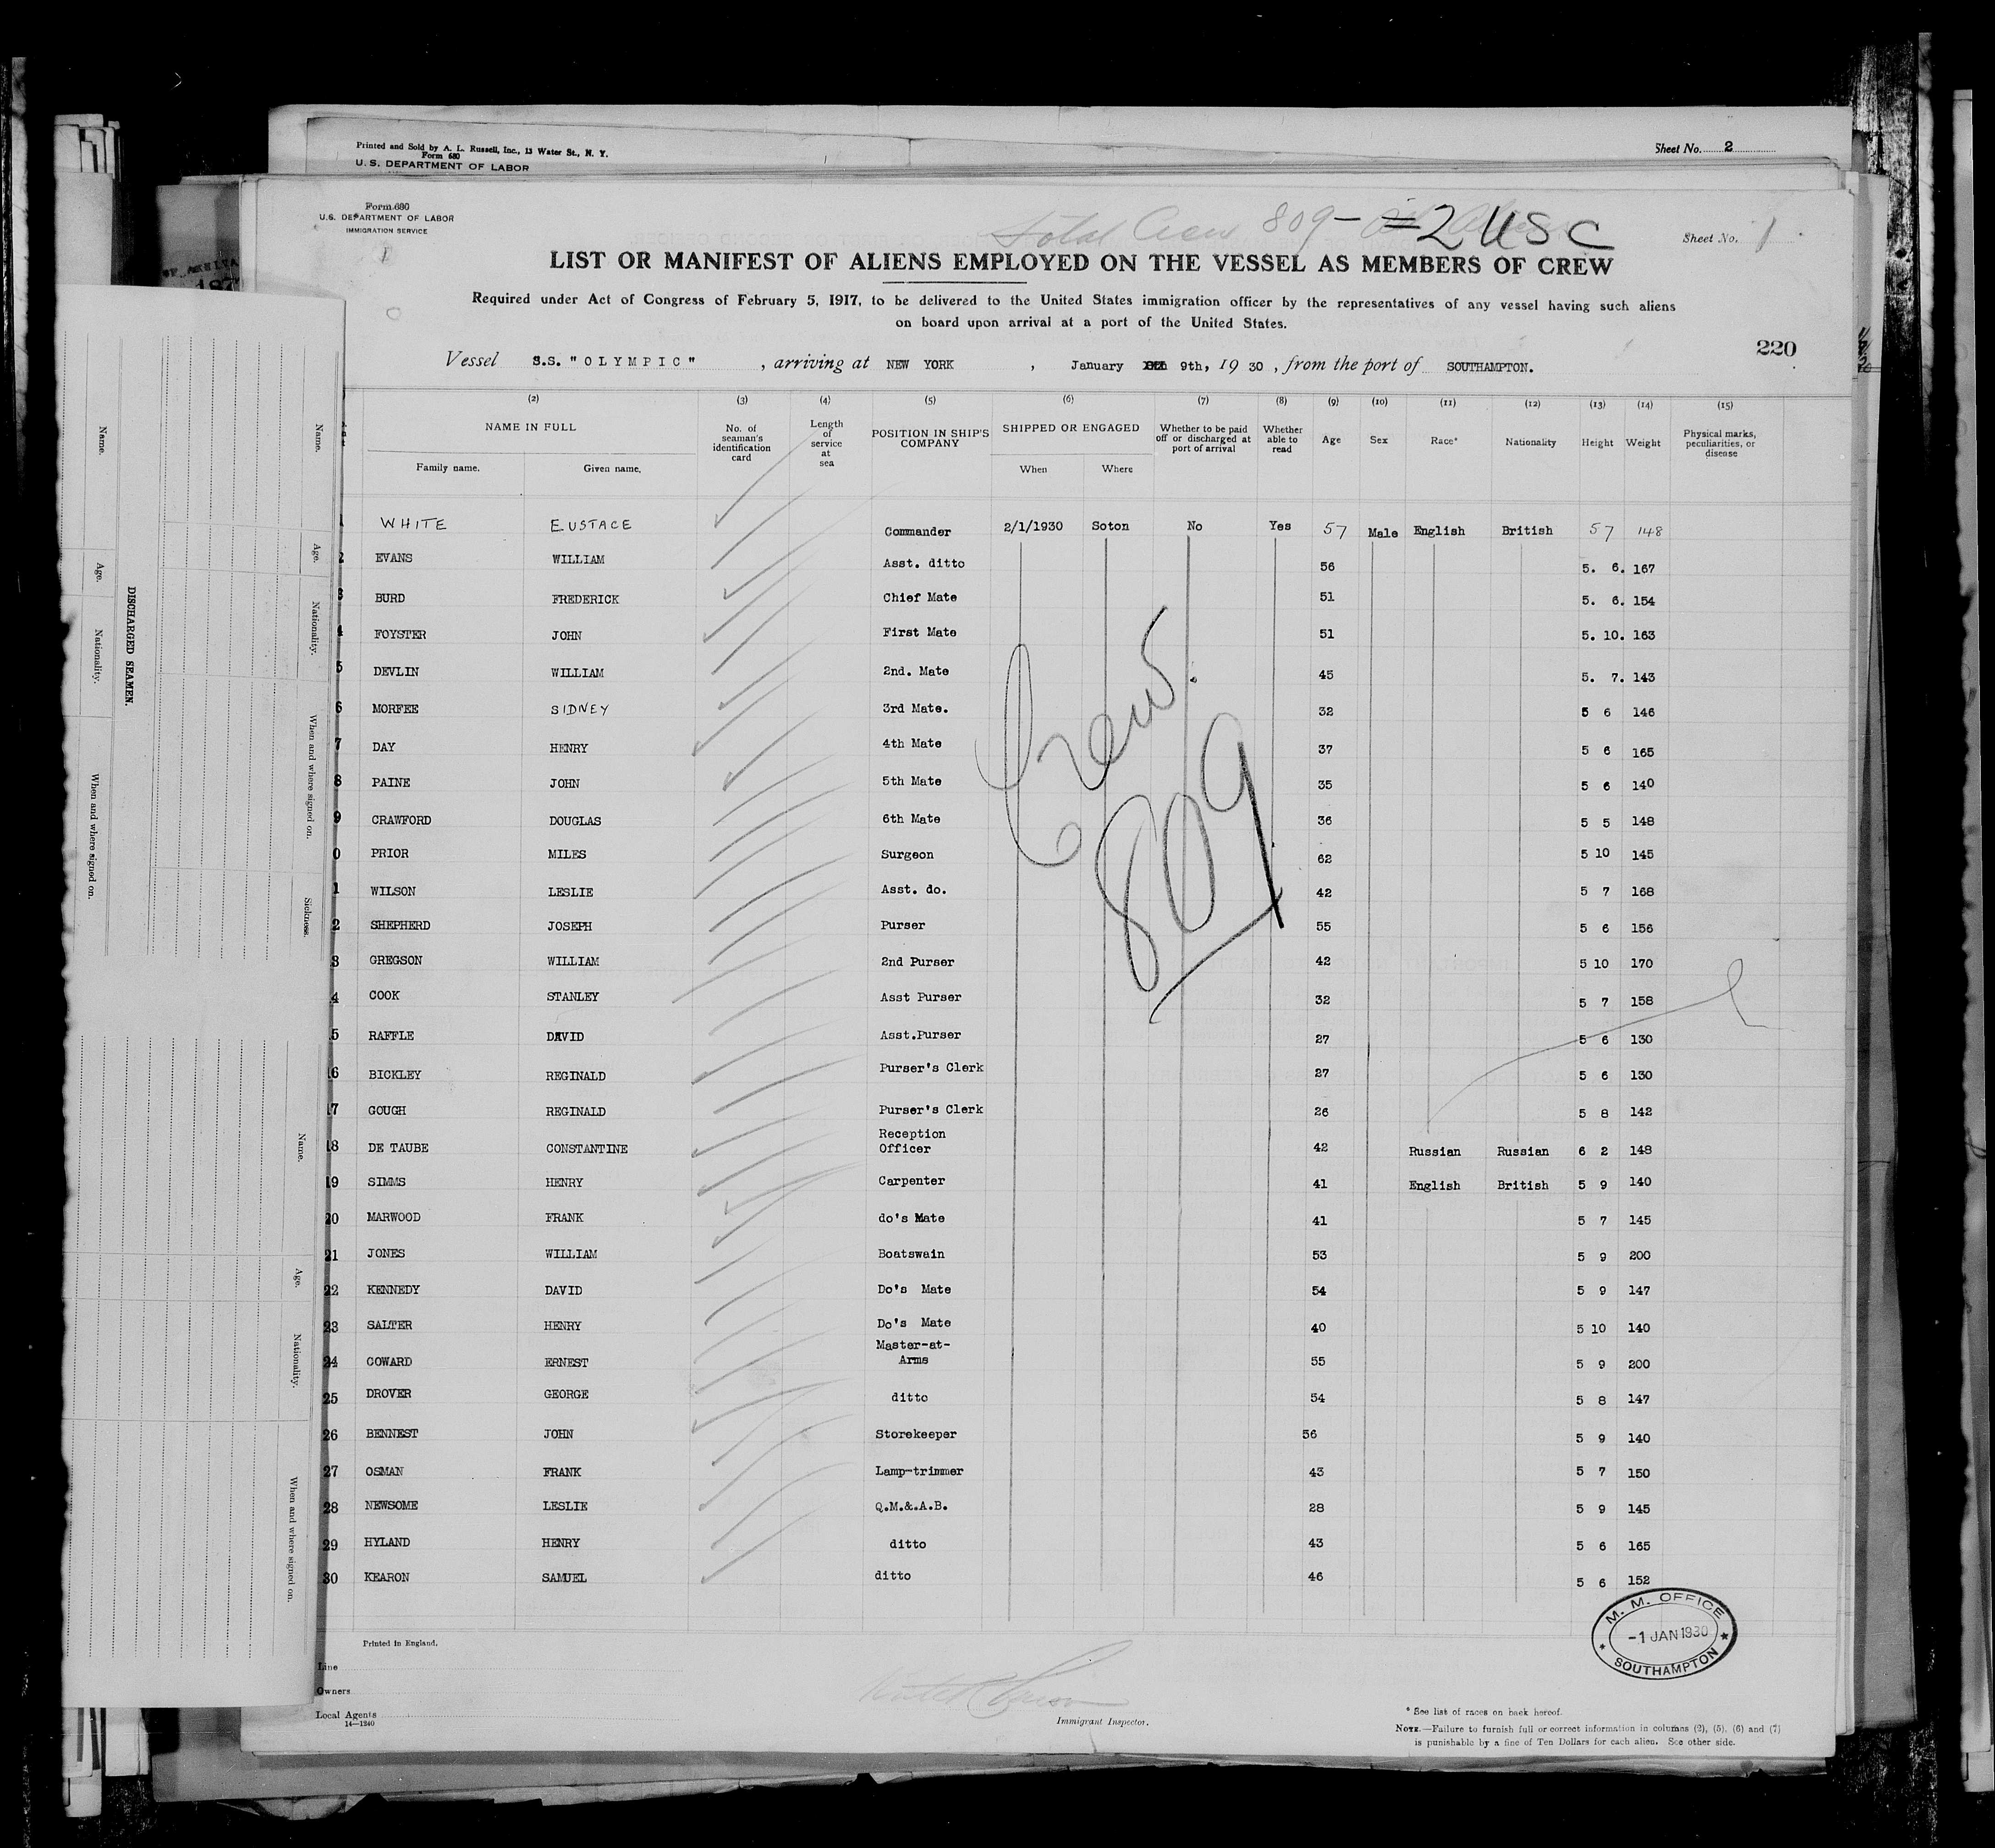 Printed and Sold by A. L. Russell, Inc., 13 Water St., N. Y.
Form 680
U. S. DEPARTMENT OF LABOR
Sheet No. 2
Form 680
U.S. DEPARTMENT OF LABOR
IMMIGRATION SERVICE
Total Crew 809 - 2 USC
Sheet No. 1
LIST OR MANIFEST OF ALIENS EMPLOYED ON THE VESSEL AS MEMBERS OF CREW
Required under Act of Congress of February 5, 1917, to be delivered to the United States immigration officer by the representatives of any vessel having such aliens
on board upon arrival at a port of the United States.
220
Vessel S.S. "OLYMPIC" , arriving at NEW YORK , January 9th, 19 30 , from the port of SOUTHAMPTON.
(2) (3) (4) (5) (6) (7) (8) (9) (10) (11) (12) (13) (14) (15)
NAME IN FULL No. of seaman's identification card Length of service at sea POSITION IN SHIP'S COMPANY SHIPPED OR ENGAGED Whether to be paid off or discharged at port of arrival Whether able to read Age Sex Race* Nationality Height Weight Physical marks, peculiarities, or disease
Family name. Given name. When Where
1 WHITE EUSTACE Commander 2/1/1930 Soton No Yes 57 Male English British 5 7 148
2 EVANS WILLIAM Asst. ditto 56 5. 6. 167
3 BURD FREDERICK Chief Mate 51 5. 6. 154
4 FOYSTER JOHN First Mate 51 5. 10. 163
5 DEVLIN WILLIAM 2nd. Mate 45 5. 7. 143
6 MORFEE SIDNEY 3rd Mate. 32 5 6 146
7 DAY HENRY 4th Mate 37 5 6 165
8 PAINE JOHN 5th Mate 35 5 6 140
9 CRAWFORD DOUGLAS 6th Mate 36 5 5 148
0 PRIOR MILES Surgeon 62 5 10 145
1 WILSON LESLIE Asst. do. 42 5 7 168
2 SHEPHERD JOSEPH Purser 55 5 6 156
3 GREGSON WILLIAM 2nd Purser 42 5 10 170
4 COOK STANLEY Asst Purser 32 5 7 158
5 RAFFLE DAVID Asst.Purser 27 5 6 130
16 BICKLEY REGINALD Purser's Clerk 27 5 6 130
17 GOUGH REGINALD Purser's Clerk 26 5 8 142
18 DE TAUBE CONSTANTINE Reception Officer 42 Russian Russian 6 2 148
19 SIMMS HENRY Carpenter 41 English British 5 9 140
20 MARWOOD FRANK do's Mate 41 5 7 145
21 JONES WILLIAM Boatswain 53 5 9 200
22 KENNEDY DAVID Do's Mate 54 5 9 147
23 SALTER HENRY Do's Mate 40 5 10 140
24 COWARD ERNEST Master-at-Arms 55 5 9 200
25 DROVER GEORGE ditto 54 5 8 147
26 BENNEST JOHN Storekeeper 56 5 9 140
27 OSMAN FRANK Lamp-trimmer 43 5 7 150
28 NEWSOME LESLIE Q.M.&.A.B. 28 5 9 145
29 HYLAND HENRY ditto 43 5 6 165
30 KEARON SAMUEL ditto 46 5 6 152
Crew.
809
M. M. OFFICE
-1 JAN 1930
SOUTHAMPTON
Printed in England.
Line
Owners
Local Agents
14—1240
Immigrant Inspector.
* See list of races on back hereof.
NOTE.—Failure to furnish full or correct information in columns (2), (5), (6) and (7)
is punishable by a fine of Ten Dollars for each alien. See other side.
DISCHARGED SEAMEN.
Name.
Age.
Nationality.
When and where signed on.
Name.
Age.
Nationality.
When and where signed on.
Sickness.
Name.
Age.
Nationality.
When and where signed on.